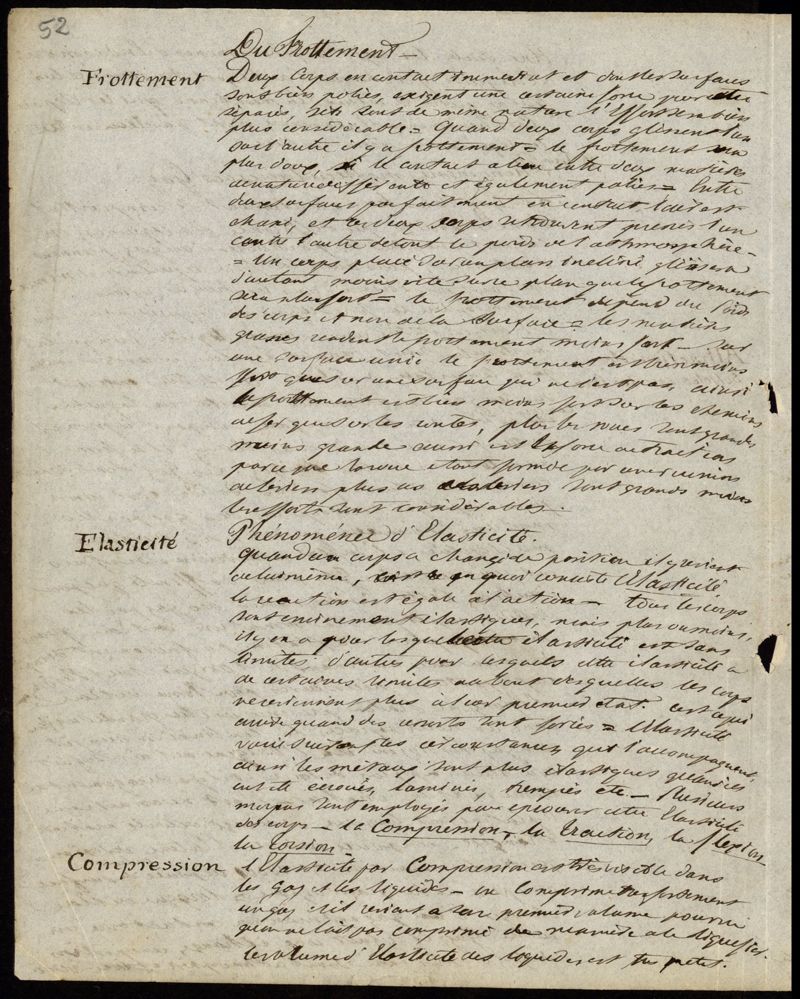 52
Du Frottement
Frottement
Deux Corps en contact immediat et dont les surfaces
sont bien polies, exigent une certaine force pour etre
séparés, s'ils sont de même nature l'Effort sera bien
plus considérable = Quand deux corps glissent l'un
sur l'autre il y a frottement = le frottement sera
plus doux, si le contact a lieu entre deux matières
de nature différente et également polies = Entre
deux surfaces parfaitment en contact l'air est
chassé, et ces deux corps se trouvent pressés l'un
contre l'autre de tout le poids de l'athmosphère -
= Un corps placé sur un plan incliné glissera
d'autant moins vite sur ce plan que le frottement
sera plus fort = le frottement dépend du Poids
des corps et non de la Surface = les matières
grasses rendent le frottement moins fort - sur
une surface unie le frottement est bien moins
fort que sur une surface qui ne l'est pas, ainsi
le frottement est bien moins fort sur les chemins
de fer que sur les routes, plus les roues sont grandes
moins grande aussi est la force de traction
parce que la roue étant formée par une réunion
de leviers plus ces leviers sont grands moins
les efforts sont considérables.
Elasticité
Phénomènes d'Elasticité.
Quand un corps a changé de position et y revient
de lui même, c'est en quoi consiste l'Elasticité
la réaction est égale à l'action - tous les corps
sont élastiques, mais plus ou moins,
il y en a pour lesquels cette élasticité est sans
limites, d'autres pour lesquels cette élasticité a
de certaines limites au bout desquelles les corps
ne reviennent plus à leur premier état. c'est ce qui
arrive quand des ressorts sont forcés = l'Elasticité
varie suivant les circonstances qui l'accompagnent,
ainsi les métaux sont plus élastiques quand ils
ont été écrouis, laminés, trempés etc - Plusieurs
moyens sont employés pour éprouver cette Elasticité
des corps - la Compression, la Traction, la flexion
la Torsion -
Compression
l'Elasticité par Compression est très visible dans
les gaz et les liquides - on comprime fortement
un gaz et il revient à son premier volume pourvu
qu'on ne l'ait pas comprimé de manière à le liquéfier.
le volume d'Elasticité des liquides est très petit.